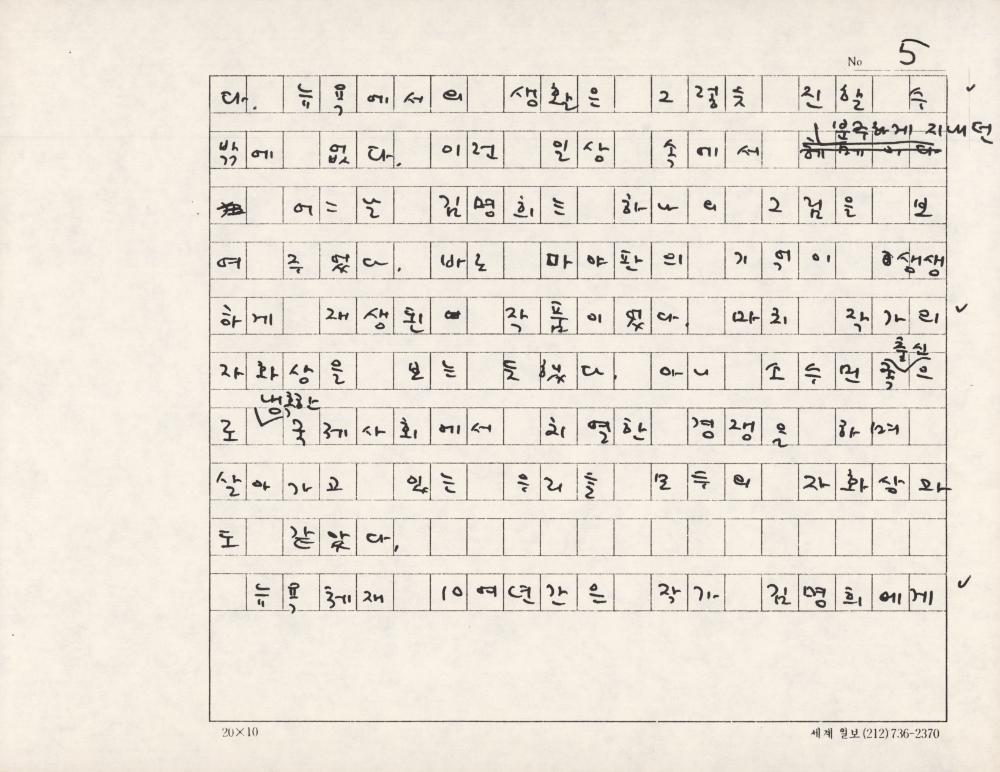 No 5
다. 뉴욕에서의 생활은 그렇듯 진할 수
밖에 없다. 이런 일상 속에서 분주하게 지내던
어느날 김명희는 하나의 그림을 보
여 주었다. 바로 마야판의 기억이 생생
하게 재생된 작품이었다. 마치 작가의
자화상을 보는 듯 했다. 아니 소수민족 출신으
로 냉혹한 국제사회에서 치열한 경쟁을 하며
살아가고 있는 우리들 모두의 자화상 과
도 같았다.
뉴욕체재 10여년간은 작가 김명희에게
20×10
세계 일보 (212) 736-2370